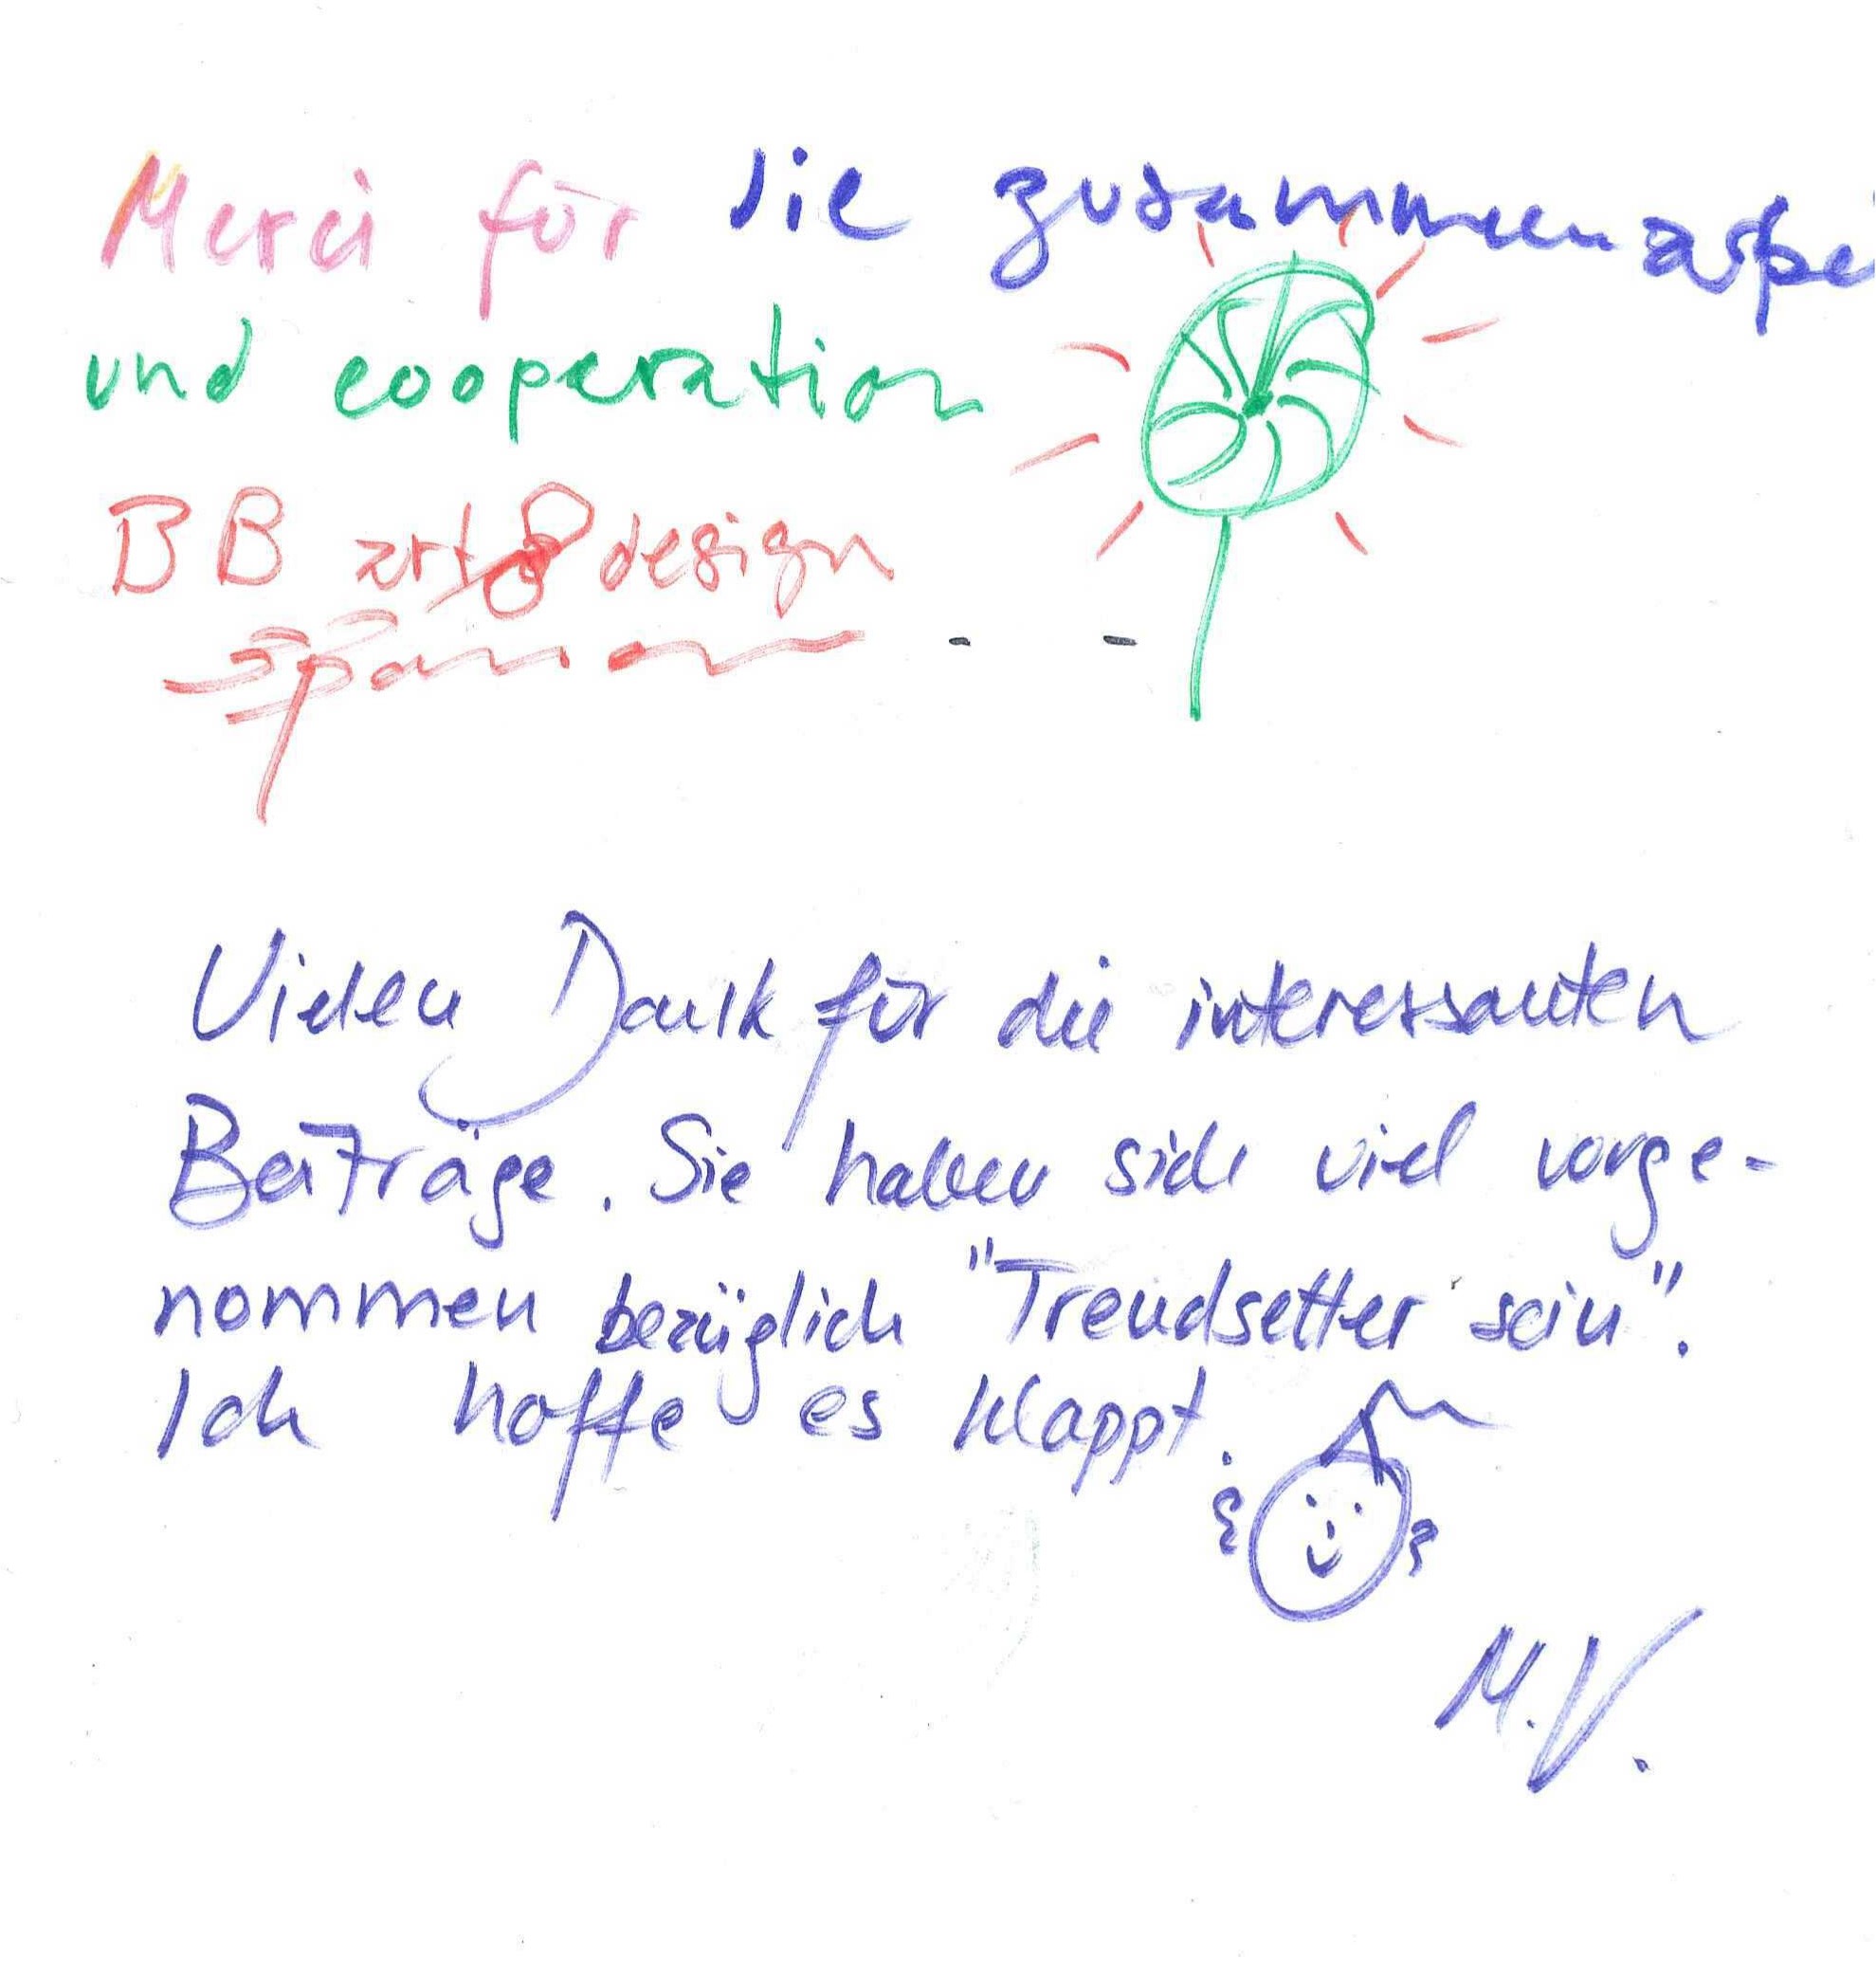 Merci für die zusammenarbei
und cooperation
BB art & design
Vielen Dank für die interessanten
Beiträge. Sie haben sich viel vorge-
nommen bezüglich "Trendsetter sein".
Ich hoffe es klappt.
M.V.